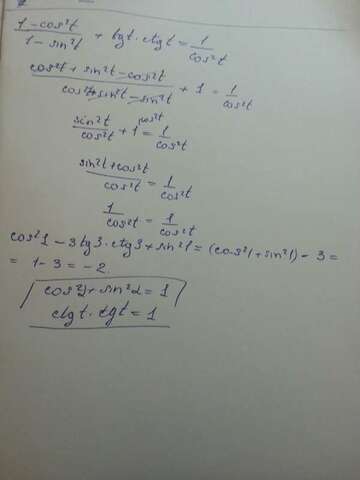 1-cos²t/1-sin²t + tgt·ctgt = 1/cos²t
cos²t+sin²t-cos²t/cos²t+sin²t-sin²t + 1 = 1/cos²t
sin²t/cos²t + 1 cos²t = 1/cos²t
sin²t+cos²t/cos²t = 1/cos²t
1/cos²t = 1/cos²t
cos²1 - 3tg3·ctg3 + sin²1 = (cos²1+sin²1) - 3 =
= 1-3 = -2.
cos²α + sin²α = 1
ctgt·ctgt = 1